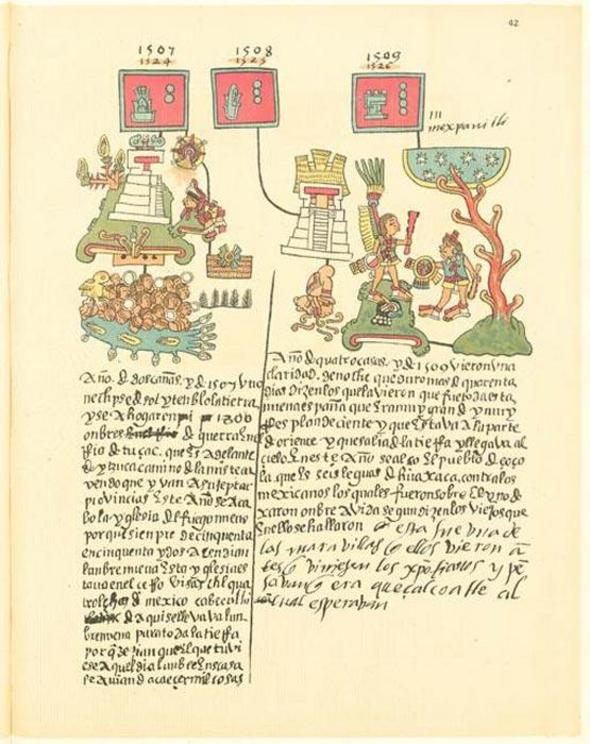 42
1507
1524
1508
1525
1509
1526
III
mexpani tli
Año. de dos cañas. y de 1507 Vuo
nechpse de sol y tenblo la tierra
y se ahogaron 1800
onbres de guerra en el
Rio de tuçac. que es adelante
de yzuca camino de la misteca
yendo que yvan A sujeptar
provincias Este Año se Aca
bo la yglesia del fuego nuevo
porque sienpre de cinquenta
en cinquenta y dos A encendian
lunbre nueva esta yglesia es
taua en el cerro
de mexico
de Aqui se lleuava lun
bre nueva para toda la tierra
por q dezian que el que tuvi
ese Aquel dia lunbre En su casa
le Avian de acaecer mil cosas
Año de quatro casas. y de 1509 vieron vna
claridad. de noche que duro mas de quarenta
dias Dizen los que la vieron que fue en toda esta
nueva españa que era muy grande y muy
Resplandeciente y que estava A la parte
de oriente y que salia de la tierra y llegava al
cielo En este Año se alço El pueblo de çoço
la que es seis leguas de huaxaca, contra los
mexicanos los quales fueron sobre El y no de
xaron onbre A vida segun dizen los viejos que
En ello se hallaron esta fue vna de
las maravillas q ellos vieron an
tes q viniesen los xpianos y pe
savan q era queçalcoatle al
qual esperavan